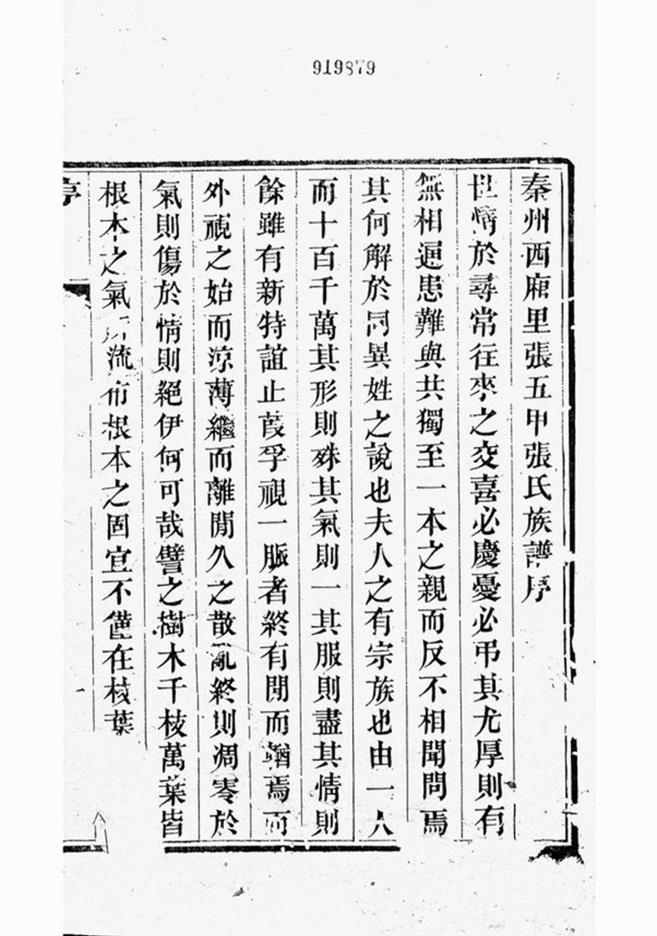 919879
秦州西廂里張五甲張氏族譜序
世情於尋常往來之交喜必慶憂必弔其尤厚則有
無相通患難與共獨至一本之親而反不相聞問焉
其何解於同異姓之說也夫人之有宗族也由一人
而十百千萬其形則殊其氣則一其服則盡其情則
餘雖有新特誼止葭莩視一脈者終有閒而
外視之始而涼薄繼而離閒久之散亂終則凋零於
氣則傷於情則絕伊何可哉譬之樹木千枝萬葉皆
根本之氣所流布根本之固宜不僅在枝葉
序